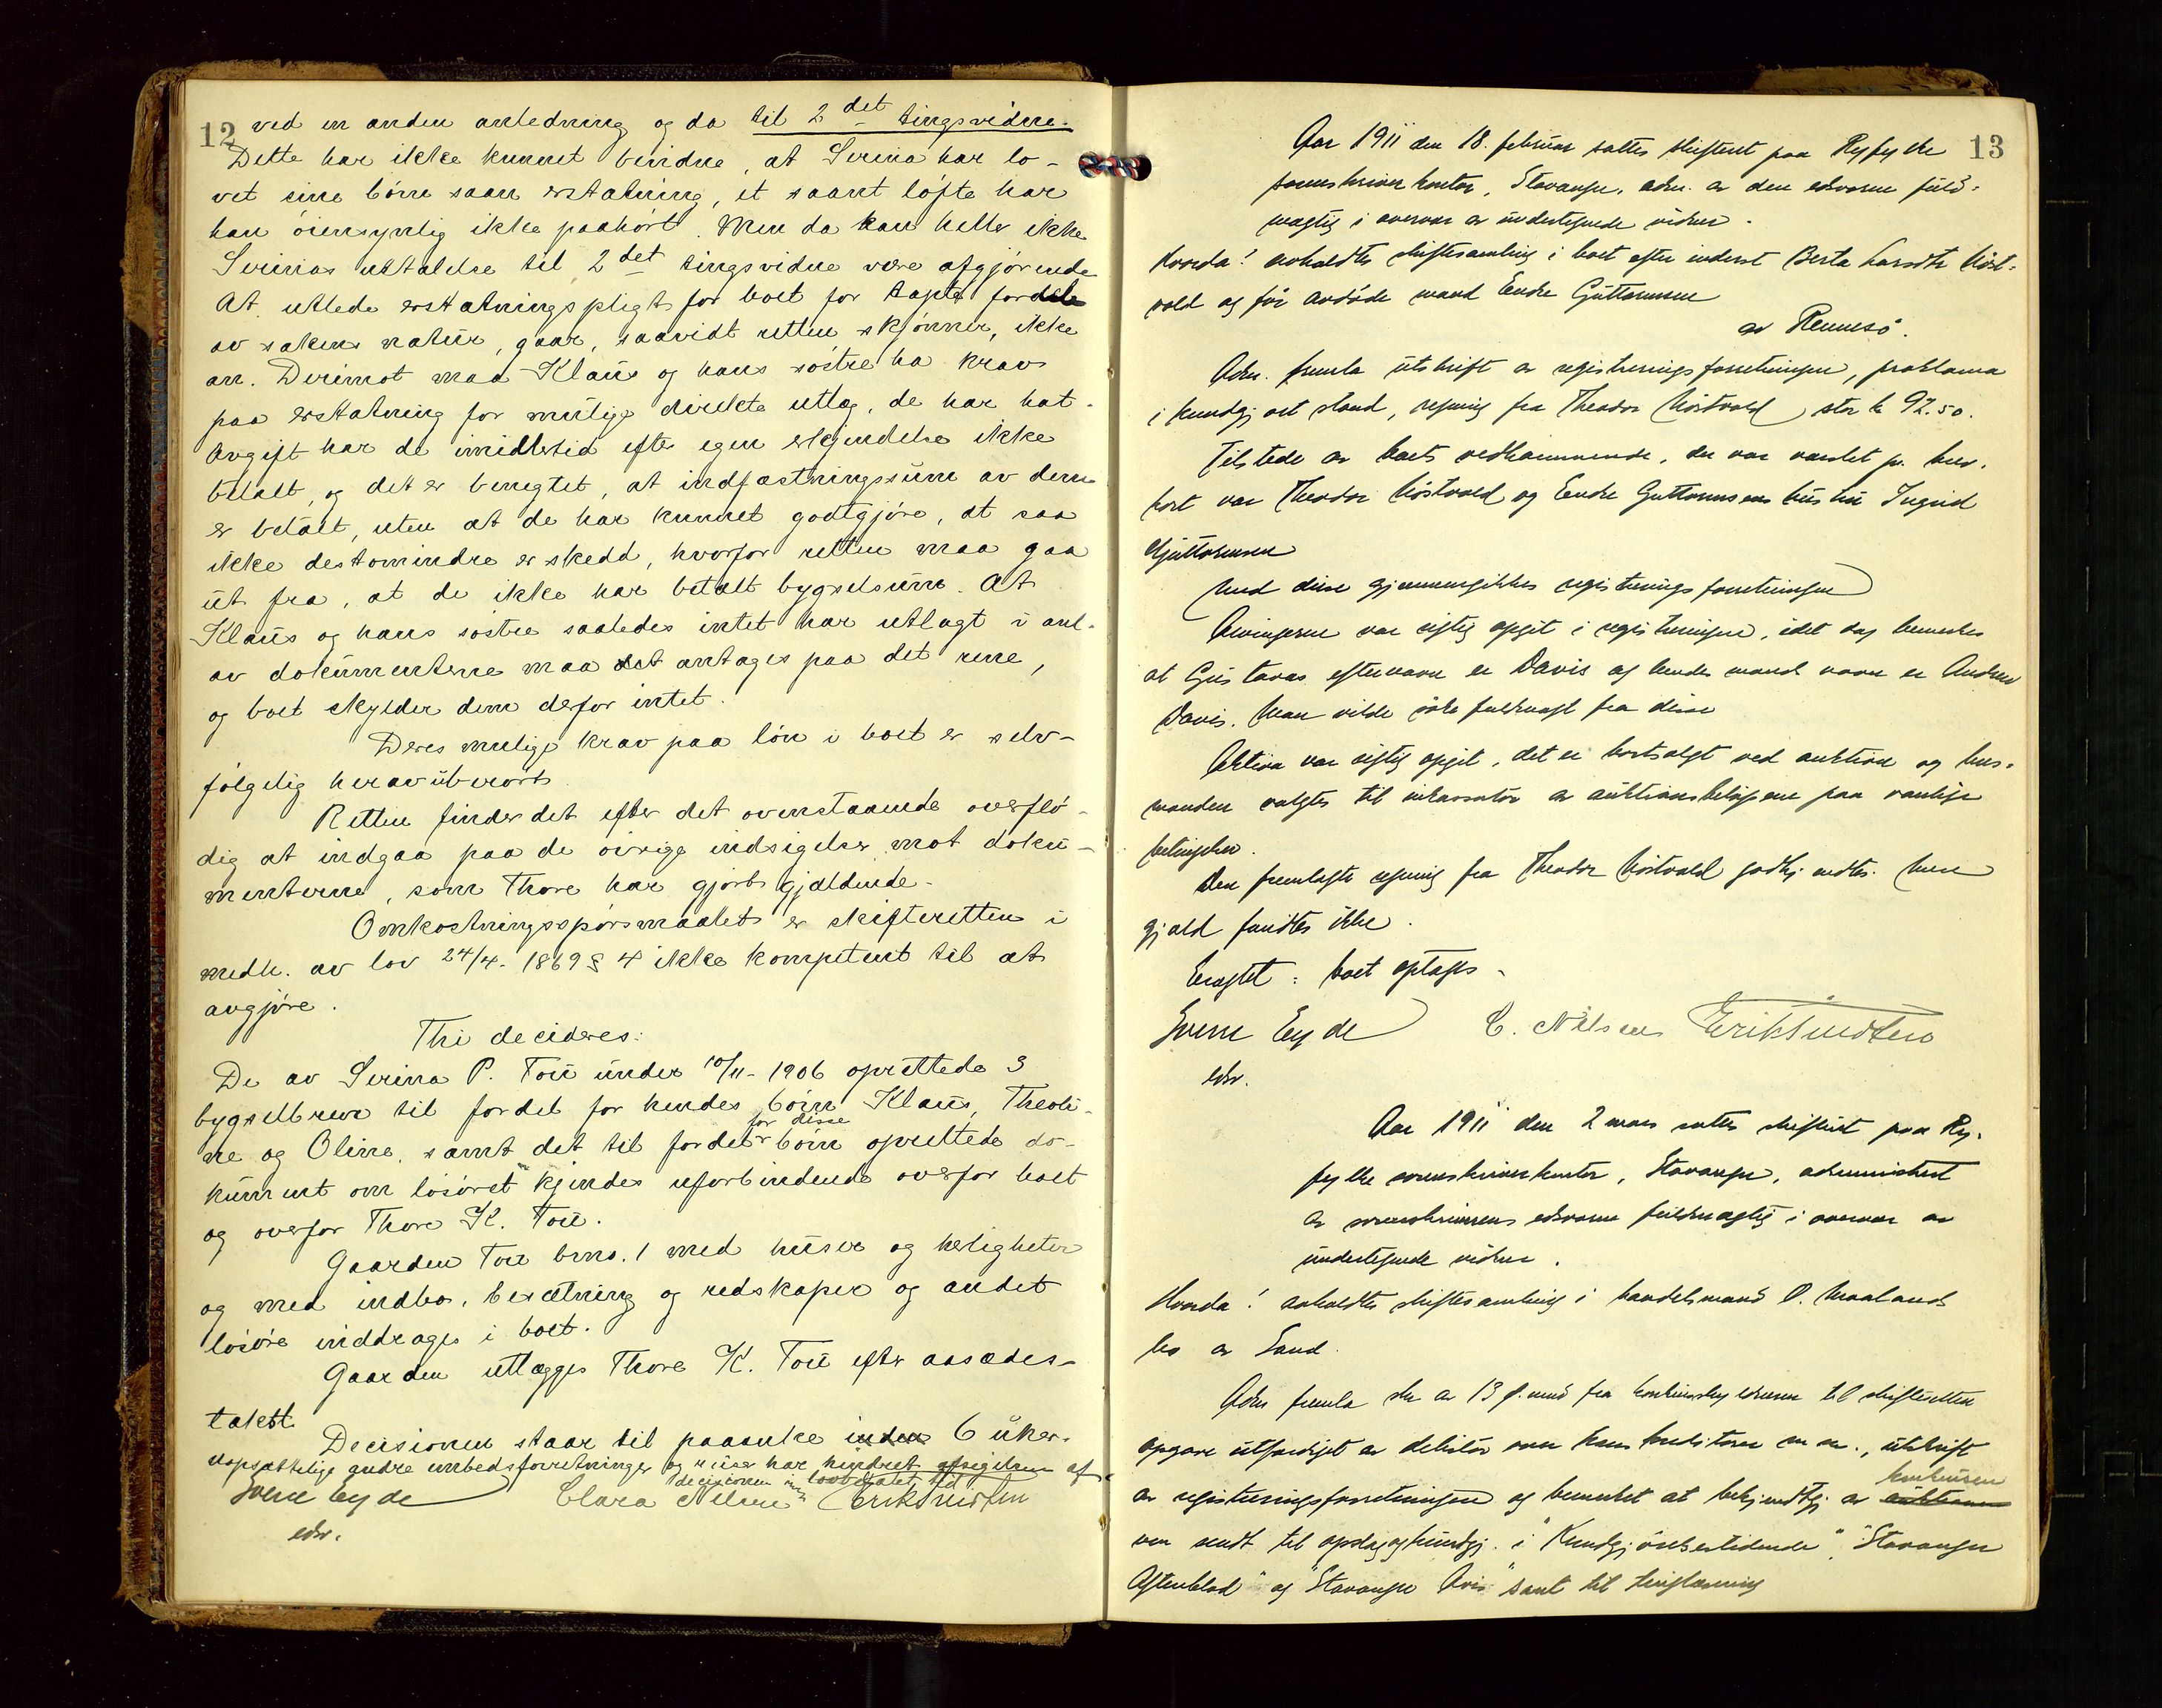 12
ved en anden anledning og da til 2det tingsvidne.
Dette har ikke kunnet hindre, at Serina har lo-
vet sine börn saan erstatning, et saant löfte har
han öiensynlig ikke paahört. Men da kan heller ikke
Serinas uttalelse til 2det tingsvidne være afgjörende
At utlede erstatningspligt for boet for tapte fordele
av sakens natur, gaar, saavidt retten skjönner, ikke
an. Derimot maa Klaus og hans söstre ha krav
paa erstatning for mulige direkte utlæg, de har hat.
Avgift har de imidlertid efter egen erkjendelse ikke
betalt, og det er benegtet, at indfæstningssum av dem
er betalt, uten at de har kunnet godtgjöre, at saa
ikke destomindre er skedd, hvorfor retten maa gaa
ut fra, at de ikke har betalt bygselsum. At
Klaus og hans söstre saaledes intet har utlagt i anl.
av dokumenterne maa det antages paa det rene,
og boet skylder dem derfor intet.
Deres mulige krav paa lön i boet er selv-
fölgelig herav uberört
Retten finder det efter det ovenstaaende overflö-
dig at indgaa paa de övrige indsigelser mot doku-
menterne, som Thore har gjort gjældende.
Omkostningsspörsmaalet er skifteretten i
medh. av lov 24/4- 1869 § 4 ikke kompetent til at
avgjöre.
Thi decideres:
De av Serina P. Tou under 10/11- 1906 oprettede 3
bygselbreve til fordel for hendes börn Klaus, Theoli-
for disse
ne og Oline, samt det til fordel börn oprettede do-
kument om lösöret kjendes uforbindende overfor boet
og overfor Thore K. Tou.
Gaarden Tou brno. 1 med huser og herligheter
og med indbo, besætning og redskaper og andet
lösöre inddrages i boet.
Gaarden utlægges Thore K. Tou efter aasædes-
takst
Decisionen staar til paaanke inden 6 uker.
Uopsættelige andre embedsforretninger og reiser har hindret afsigelsen af
decisionen inden lovbefalet tid
Sverre Eyde Clara Nilsen Erik Knudsen
edsv.
13
Aar 1911 den 18. februar sattes skifteret paa Ryfylke
sorenskriverkontor, Stavanger, adm. av den edsvorne fuld-
mægtig i overvær av undertegnede vidner.
Hvorda! avholdtes skiftesamling i boet efter inderst Berta Larsdtr Höst-
vold og för avdöde mand Endre Guttormsen
av Rennesö.
Adm. fremla utskrift av registreringsforretningen, proklama
i kundgjort stand, regning fra Theodor Höstvold stor kr 92.50.
Tilstede av boets vedkommende, der var varslet pr. brev-
kort var Theodor Höstvold og Endre Guttormsens hustru Ingrid
Guttormsen
Med disse gjennemgikkes registreringsforretningen
Arvingerne var rigtig opgit i registreringen, idet dog bemerkes
at Gustavas efternavn er Davis og hendes mands navn er Andrew
Davis. Man vilde söke fuldmagt fra disse
Aktiva var rigtig opgit, det er bortsolgt ved auktion og lens-
manden valgtes til inkassator av auktionsbelöpene paa vanlige
betingelser.
Den fremlagte regning fra Theodor Höstvold godkjendtes. Mere
gjæld fandtes ikke.
Eragtet: boet optages.
Sverre Eyde C. Nilsen Erik Knudsen
edsv.
Aar 1911 den 2 mars sattes skifteret paa Ry-
fylke sorenskriverkontor, Stavanger, administrert
av sorenskriverens edsvorne fuldmægtig i overvær av
undertegnede vidner.
Hvorda! avholdtes skiftesamling i handelsmand O. Maalands
bo av Sand.
Adm fremla skr av 13 f. mnd fra konkursskyldneren til skifteretten
opgave utfærdiget av debitor over hans kreditorer m. m., utskrift
konkursen
av registreringsforretningen og bemerket at bekjendtgj. av auktionen
var sendt til opslag og kundgj. i "Kundgjörelsestidende", "Stavanger
Aftenblad" og "Stavanger Avis" samt til tinglæsning